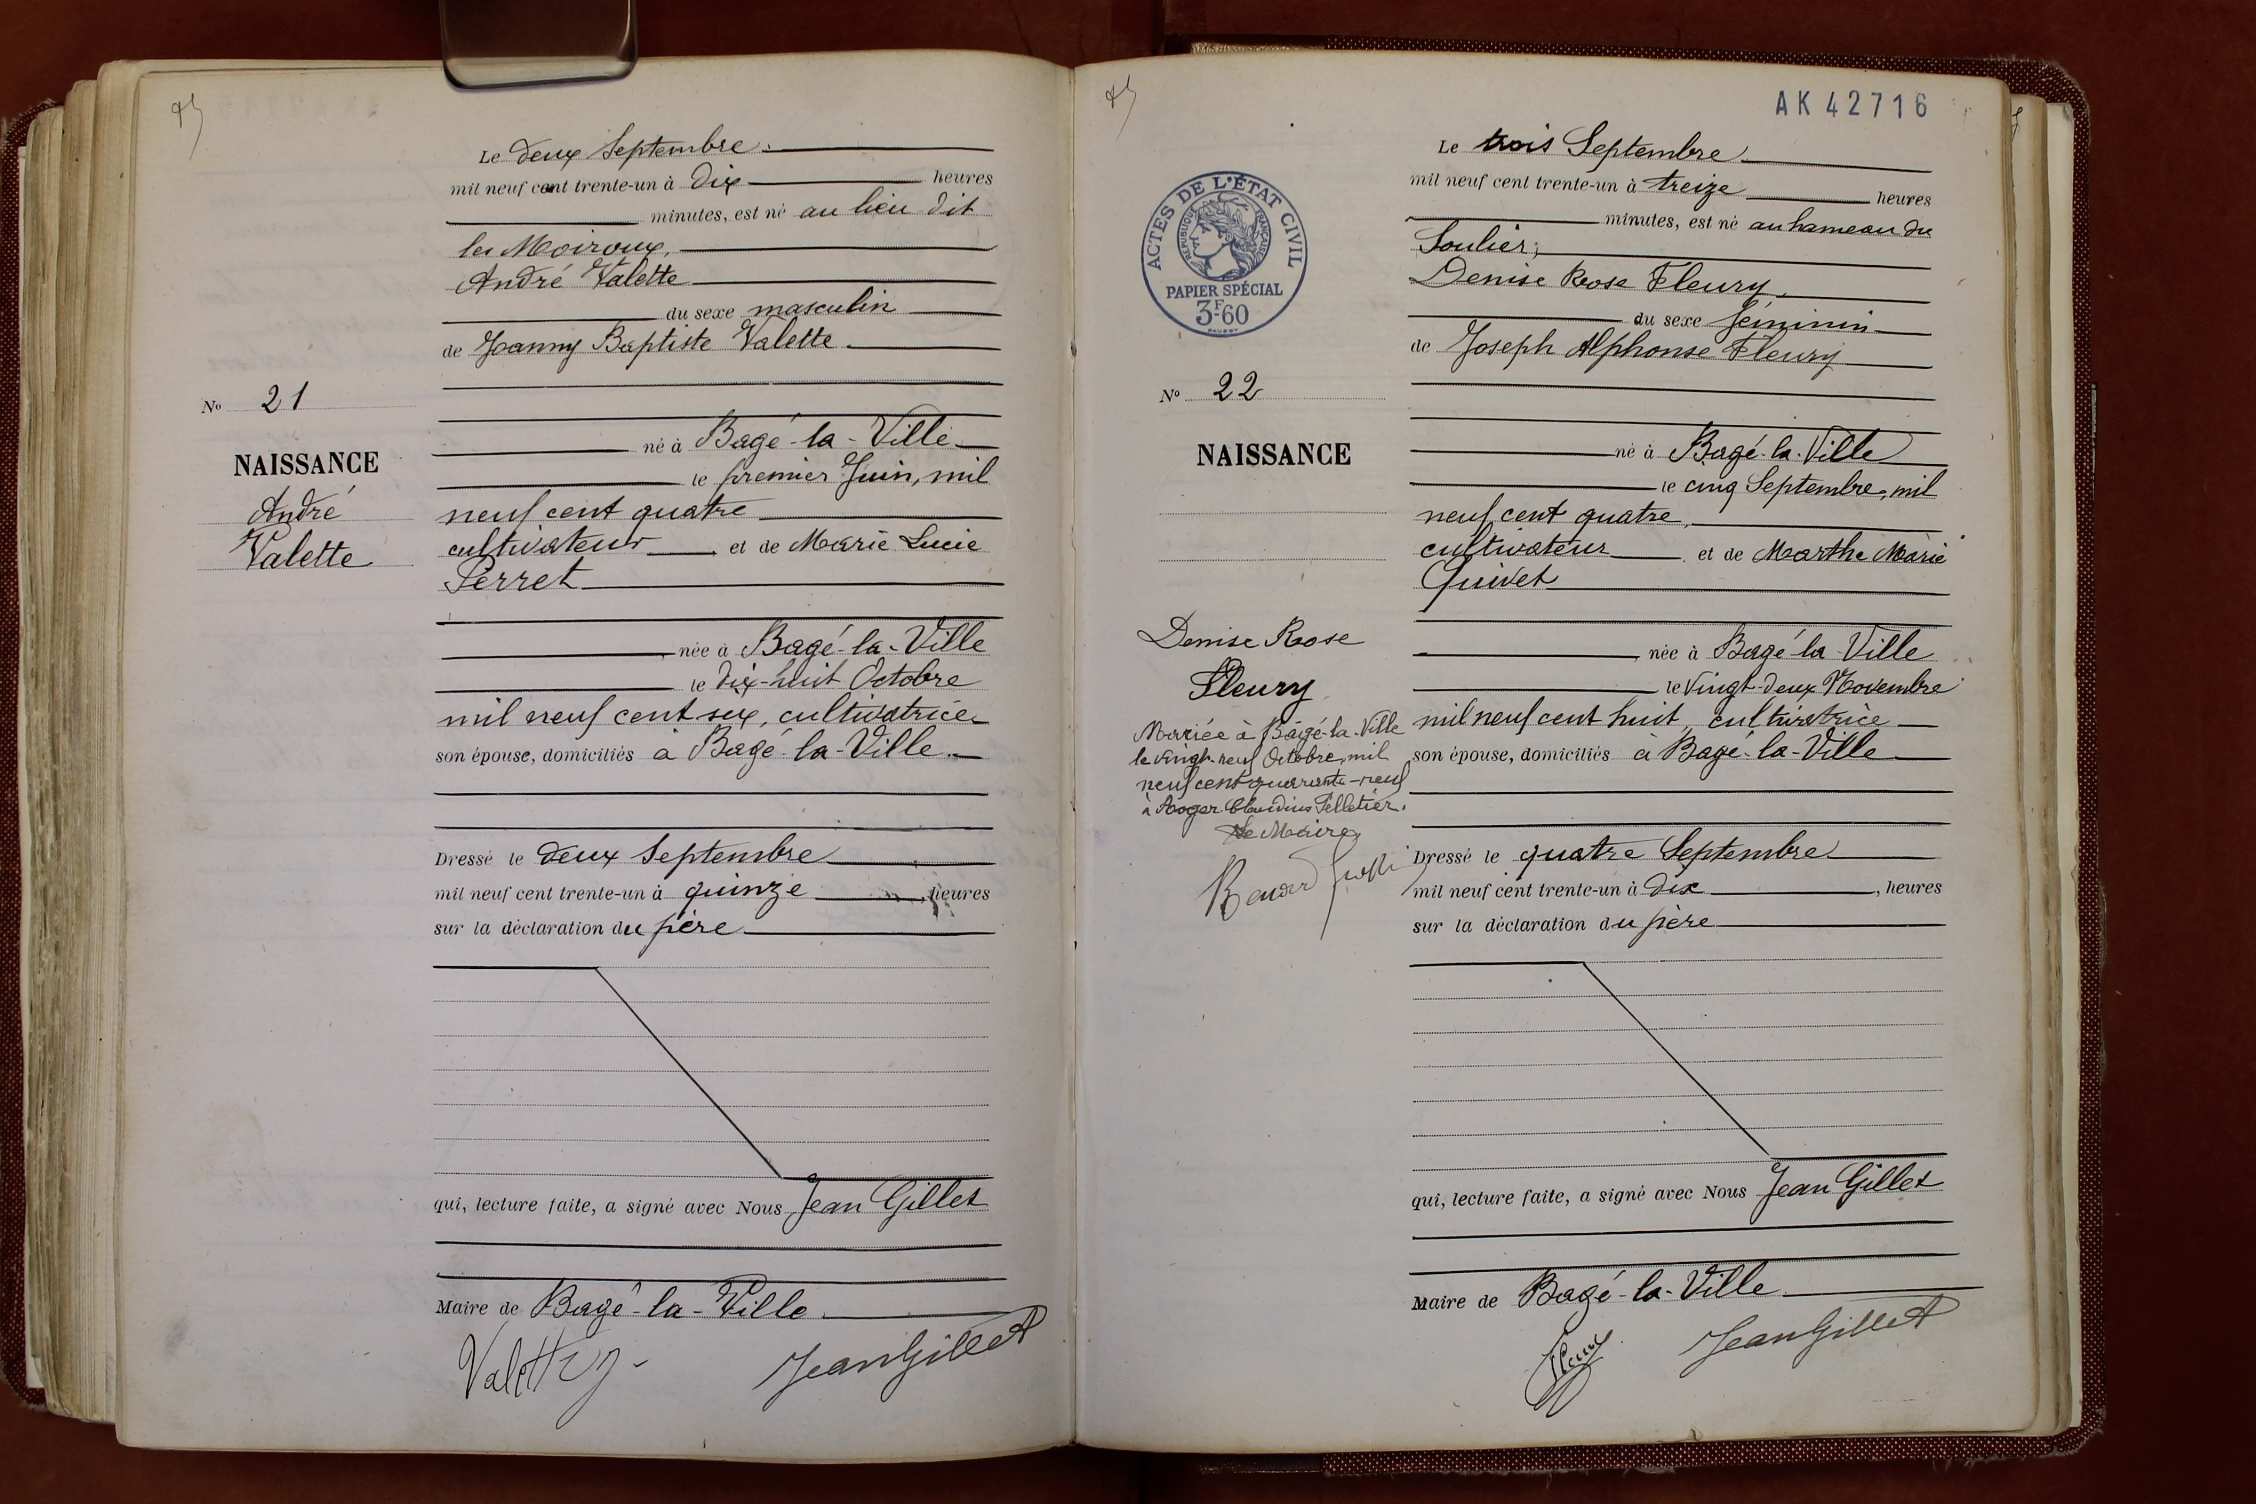 Le deux Septembre.
mil neuf cent trente-un à dix heures
minutes, est né au lieu dit
les Moiroux,
André Valette
du sexe masculin
de Joanny Baptiste Valette.
No 21
né à Bagé-la-Ville
NAISSANCE
le premier Juin, mil
André
neuf cent quatre
Valette
cultivateur et de Marie Lucie
Perret
née à Bagé-la-Ville
le dix-huit Octobre
mil neuf cent six, cultivatrice
son épouse, domiciliés à Bagé-la-Ville.
Dressé le deux Septembre
mil neuf cent trente-un à quinze, heures
sur la déclaration du père
qui, lecture faite, a signé avec Nous Jean Gillet
Maire de Bagé-la-Ville.
Jean Gillet
AK 42716
Le trois Septembre
mil neuf cent trente-un à treize heures
minutes, est né au hameau du
Soulier;
Denise Rose Fleury.
du sexe féminin
de Joseph Alphonse Fleury
ACTES DE L'ÉTAT CIVIL
RÉPUBLIQUE FRANÇAISE
PAPIER SPÉCIAL
3F60
No 22
NAISSANCE
né à Bagé-la-Ville
le cinq Septembre, mil
neuf cent quatre,
cultivateur et de Marthe Marie
Guivet
Denise Rose
Fleury
née à Bagé-la-Ville
le vingt-deux Novembre
mil neuf cent huit, cultivatrice
son épouse, domiciliés à Bagé-la-Ville
Mariée à Bâgé-la-Ville
le vingt-neuf Octobre, mil
neuf cent quarante-neuf
à Roger Claudius Pelletier.
Le Maire,
Dressé le quatre Septembre
mil neuf cent trente-un à dix, heures
sur la déclaration du père
qui, lecture faite, a signé avec Nous Jean Gillet
Maire de Bagé-la-Ville
Fleury
Jean Gillet